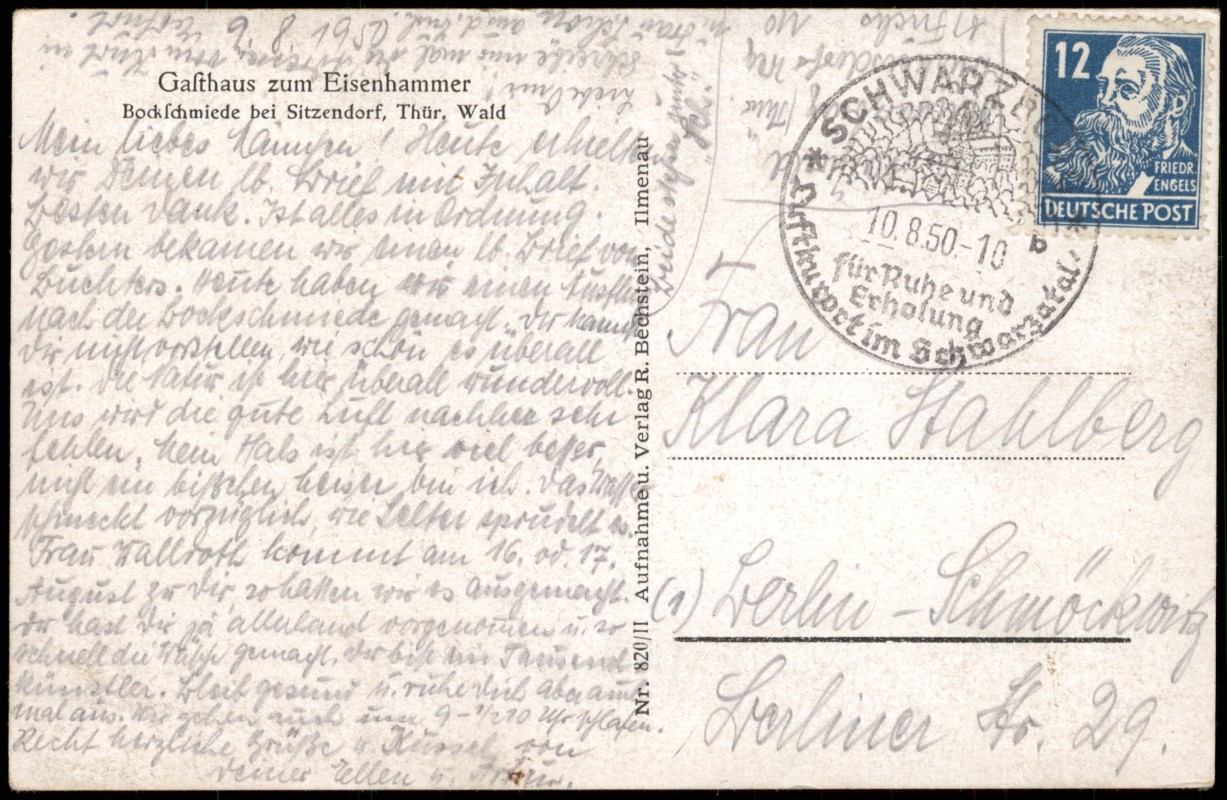 Gasthaus zum Eisenhammer
Bockschmiede bei Sitzendorf, Thür. Wald
Mein liebes Hannchen! Heute erhielten
wir Deinen lb. Brief mit Inhalt.
Besten Dank. Ist alles in Ordnung.
Gestern bekamen wir einen lb. Brief von
Buchters. Heute haben wir einen Ausflug
nach der Bockschmiede gemacht. Du kannst
Dir nicht vorstellen, wie schön es überall
ist. Die Natur ist hier überall wundervoll.
Uns wird die gute Luft nachher sehr
fehlen. Mein Hals ist viel besser
nicht ein bisschen heiser bin ich. Das Wasser
schmeckt vorzüglich, wie Selter sprudelt es.
Frau Wallroth kommt am 16. od. 17.
August zu Dir, so hatten wir es ausgemacht.
Du hast Dir ja allerhand vorgenommen u. so
schnell die Wäsche gemacht. Du bist ein Tausend
Künstler. Bleib gesund u. ruhe Dich aber auch
mal aus. Wir gehen auch um 9-1/210 Uhr schlafen.
Recht herzliche Grüße u. Küssel von
Deiner Ellen u.
6 8 1950
Nr. 820/II Aufnahme u. Verlag R. Bechstein, Ilmenau
12
FRIEDR.
ENGELS
DEUTSCHE POST
* SCHWARZBURG *
10.8.50-10
b
für Ruhe und
Erholung
Luftkurort im Schwarzatal
Frau
Klara Stahlberg
(1) Berlin - Schmöckwitz
Berliner Str. 29.